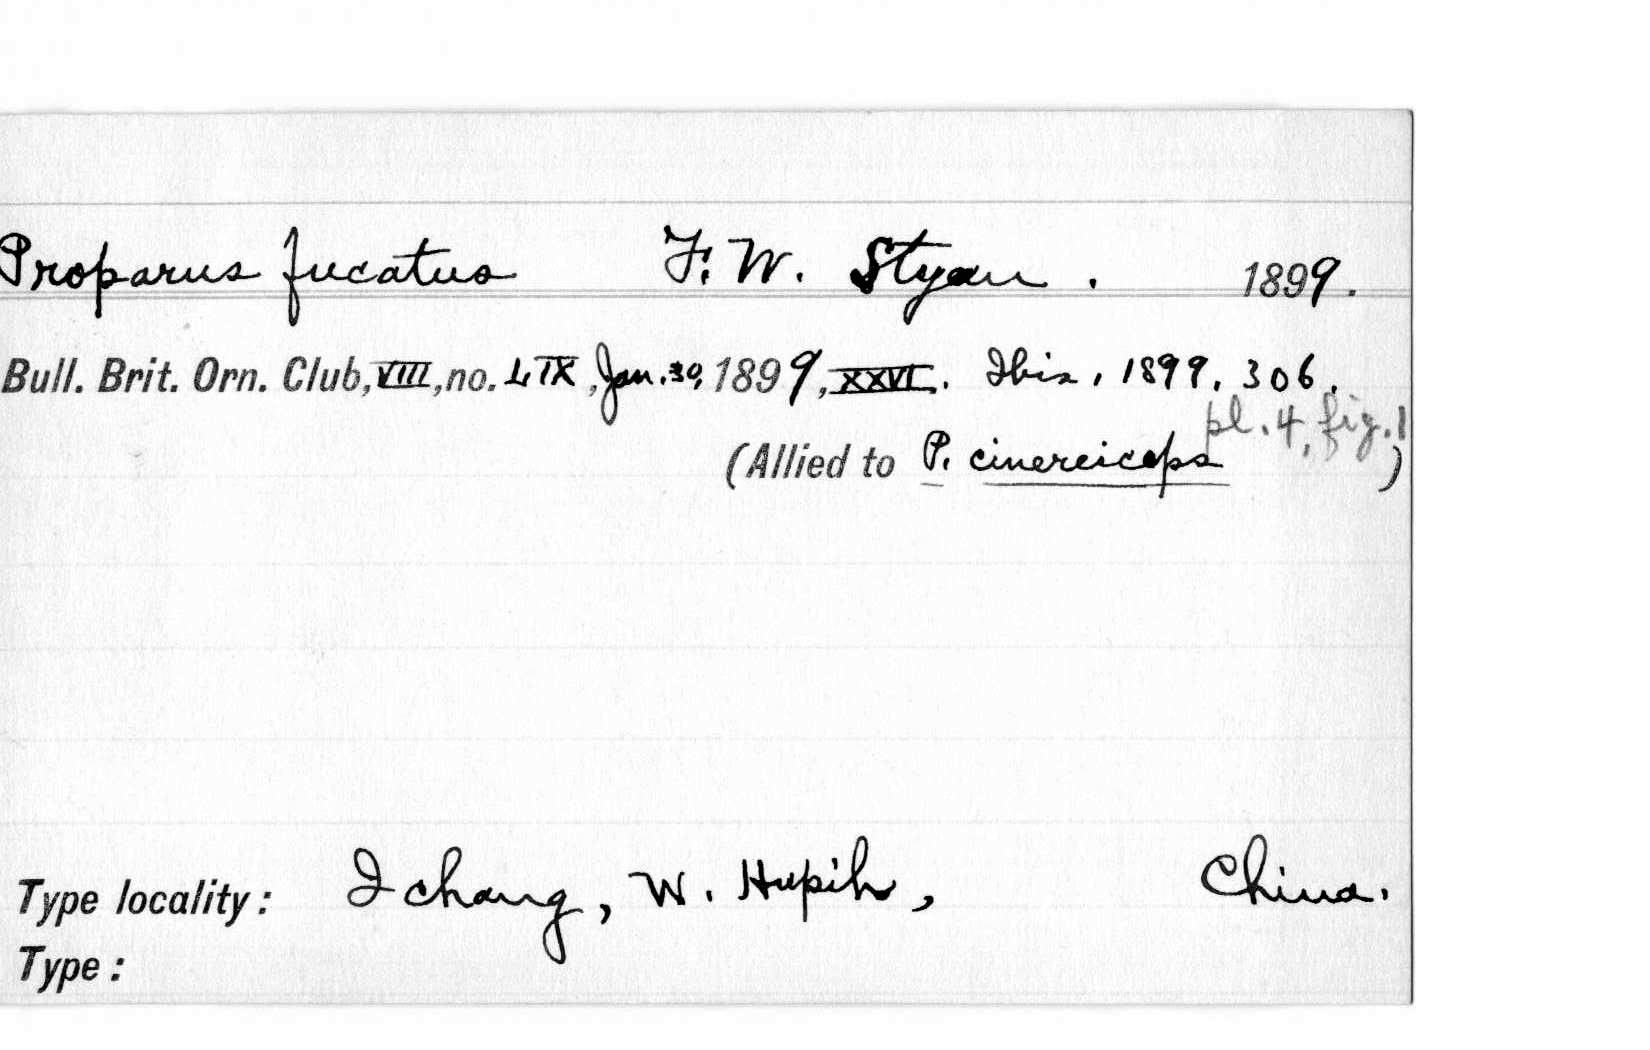 Proparus fucatus F. W. Styan. 1899.
Bull. Brit. Orn. Club, VIII, no. LIX, Jan. 30, 1899, XXVI. Ibis, 1899, 306.
pl. 4, fig. 1
(Allied to P. cinereiceps )
Type locality: Ichang, W. Hupih, China.
Type: